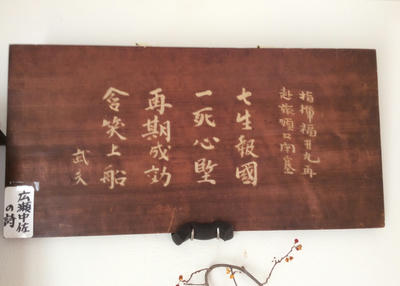 指揮福井丸再
赴旅順口閉塞
七生報國
一死心堅
再期成功
含笑上船
武夫
広瀬中佐
の詩